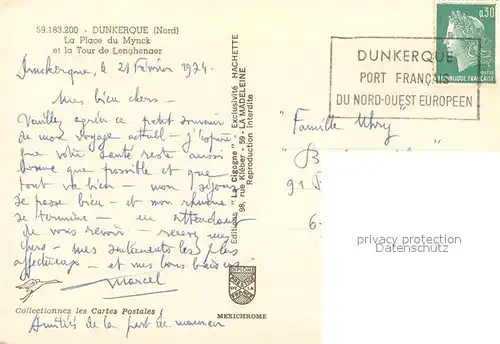 59.183.200 - DUNKERQUE (Nord)
La Place du Mynck
et la Tour de Lenghenaer
Dunkerque, le 21 Février 1974.
Mes bien chers -
Veuillez agréer ce petit souvenir
de mon voyage actuel - j'espère
que votre santé reste aussi
bonne que possible et que
tout va bien - mon séjour
se passe bien - et mon rhume
se termine - en attendant
de vous revoir - recevez mes
chers - mes sentiments les
affectueux - et mes bons baisers
Marcel
Collectionnez les Cartes Postales !
Amitiés de la part de maman
Editions "La Cigogne" - Exclusivité HACHETTE
98, rue Kléber - 59 - LA MADELEINE
Reproduction interdite
MEXICHROME
0,30
REPUBLIQUE FRANCAISE
POSTES
DUNKERQUE
PORT FRANÇAIS
DU NORD-OUEST EUROPEEN
"Famille Uhry"
"B
91 F
6-
privacy protection
Datenschutz